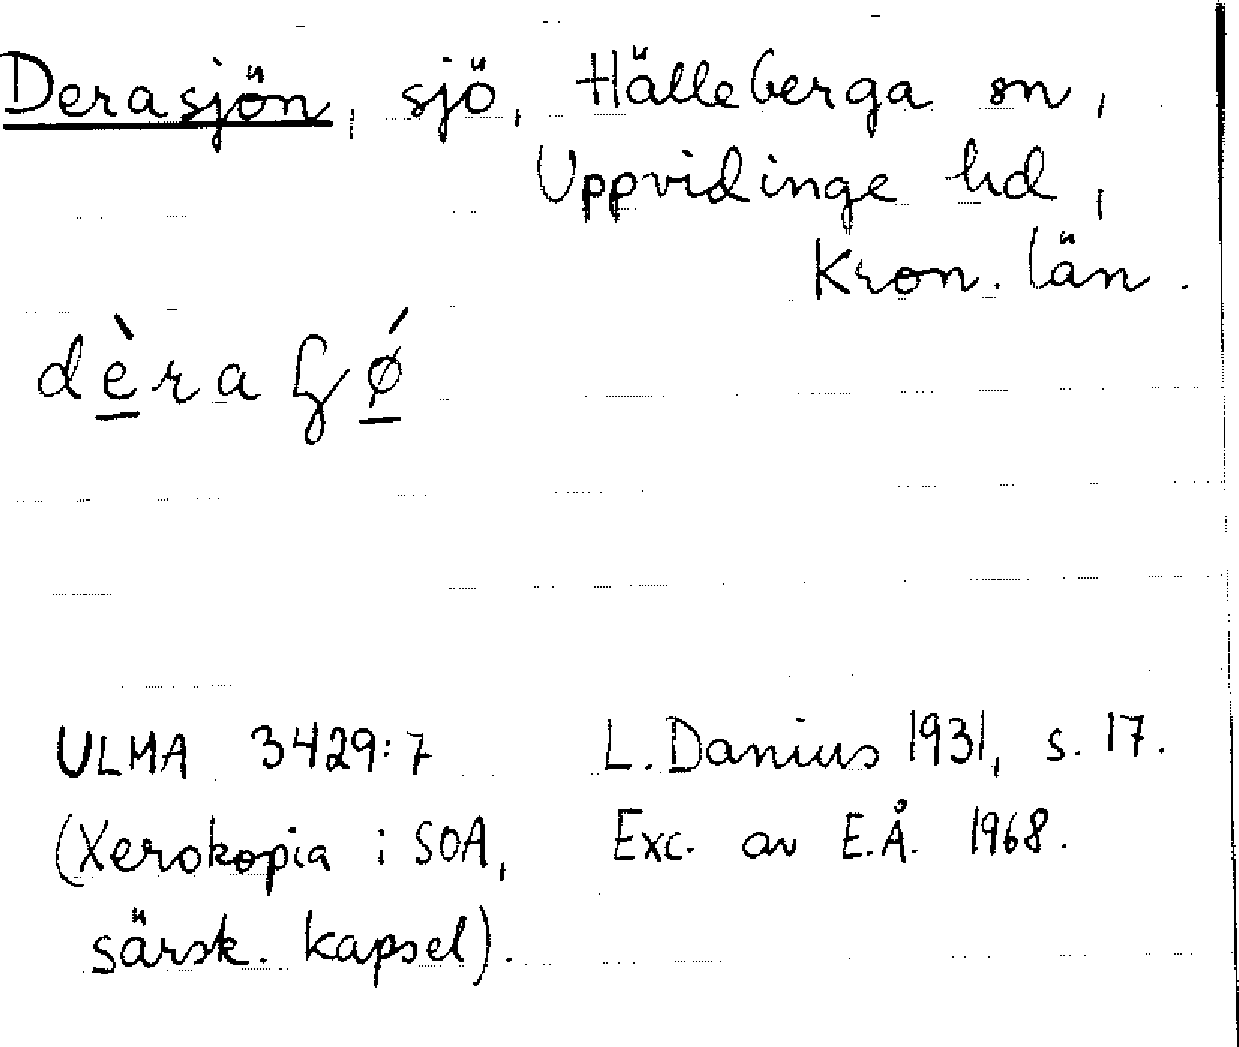 Derasjön, sjö, Hälleberga sn,
Uppvidinge hd,
Kron. län.
dèra ɧǿ
ULMA 3429:7 L. Danius 1931, s. 17.
(Xerokopia i SOA, Exc. av E.Å. 1968.
särsk. kapsel).